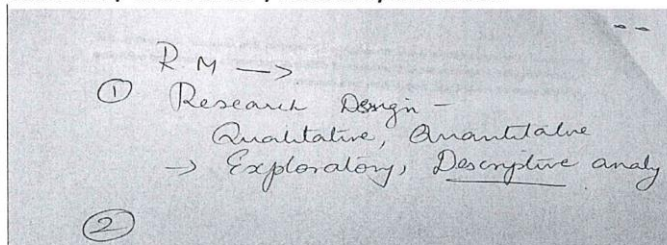 R M →
① Research Design -
Qualitative, Quantitative
→ Exploratory, Descriptive analy
②